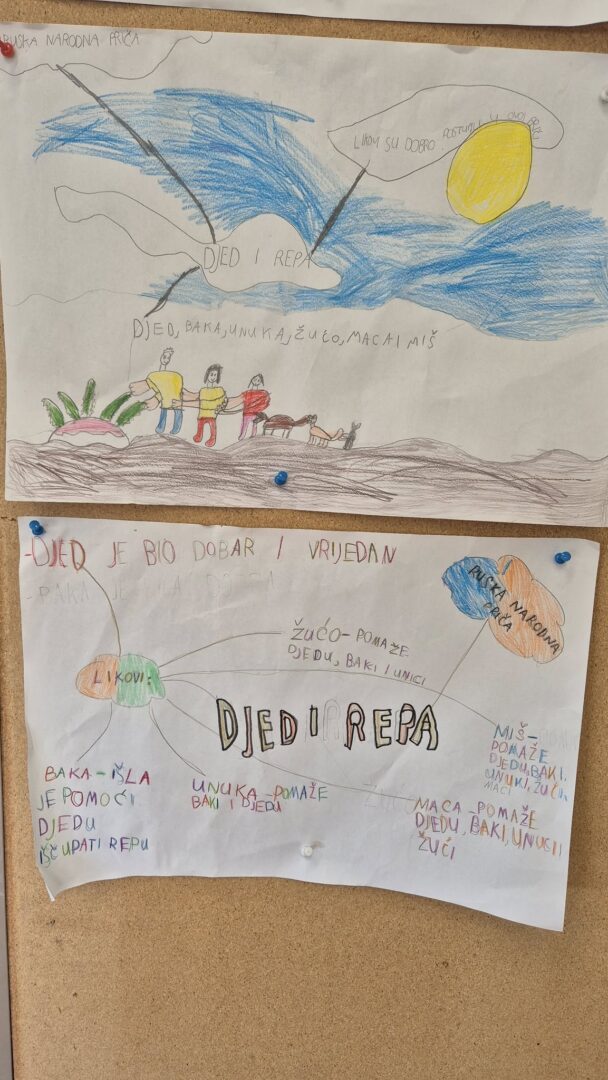 RUSKA NARODNA PRIČA
LIKOVI SU DOBRO POSTUPILI U OVOJ PRIČI
DJED I REPA
DJED, BAKA, UNUKA, ŽUĆO, MACA I MIŠ
-DJED JE BIO DOBAR I VRIJEDAN
-BAKA JE BILA
RUSKA NARODNA
PRIČA
ŽUĆO-POMAŽE
DJEDU, BAKI I UNICI
LIKOVI:
DJED I REPA
MIŠ-
POMAŽE
DJEDU, BAKI,
UNUKI, ŽUĆI,
MACI
BAKA-IŠLA
JE POMOĆI
DJEDU
IŠČUPATI REPU
UNUKA-POMAŽE
BAKI I DJEDU
MACA-POMAŽE
DJEDU, BAKI, UNUCI I
ŽUĆI